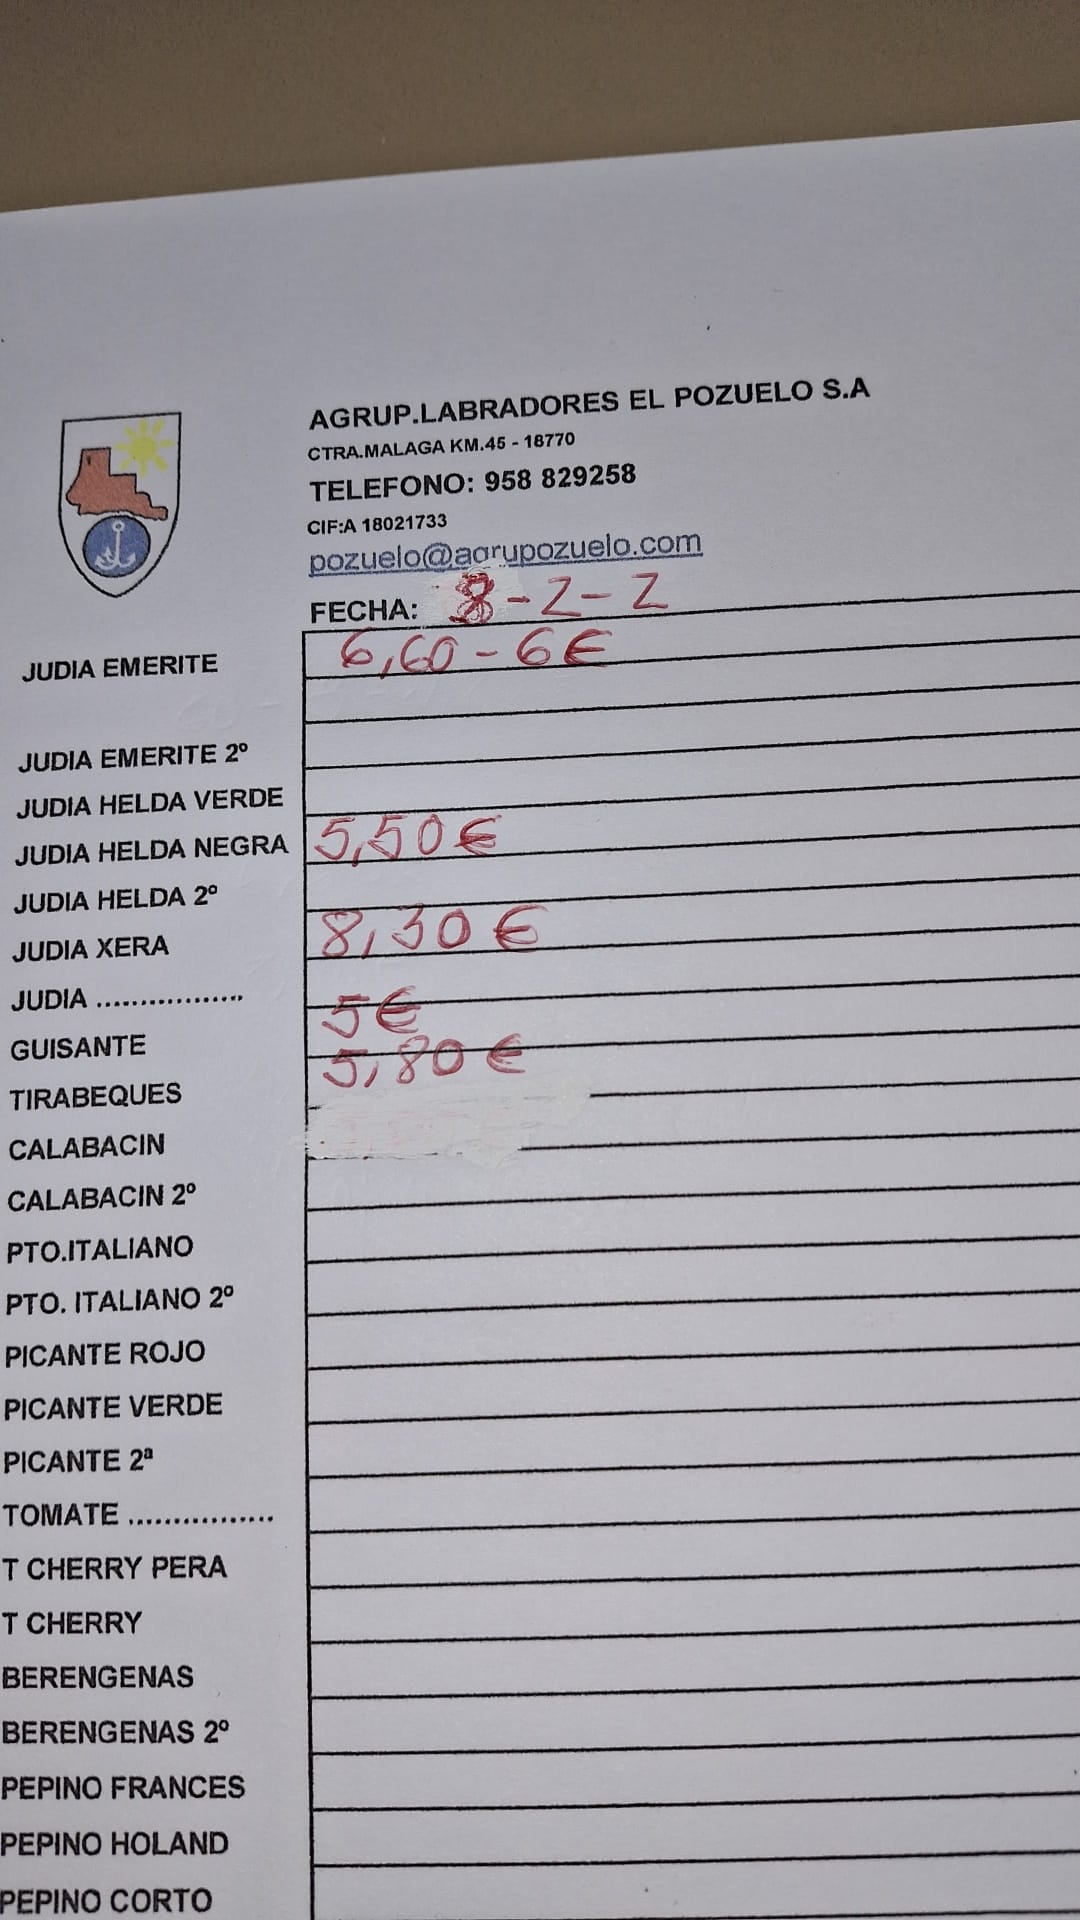 AGRUP.LABRADORES EL POZUELO S.A
CTRA.MALAGA KM.45 - 18770
TELEFONO: 958 829258
CIF:A 18021733
pozuelo@agrupozuelo.com
FECHA: 8-2-2
JUDIA EMERITE 6,60-6€
JUDIA EMERITE 2º
JUDIA HELDA VERDE
JUDIA HELDA NEGRA 5,50€
JUDIA HELDA 2º
JUDIA XERA 8,30€
JUDIA .................
GUISANTE 5€
TIRABEQUES 5,80€
CALABACIN
CALABACIN 2º
PTO.ITALIANO
PTO. ITALIANO 2º
PICANTE ROJO
PICANTE VERDE
PICANTE 2ª
TOMATE ................
T CHERRY PERA
T CHERRY
BERENGENAS
BERENGENAS 2º
PEPINO FRANCES
PEPINO HOLAND
PEPINO CORTO